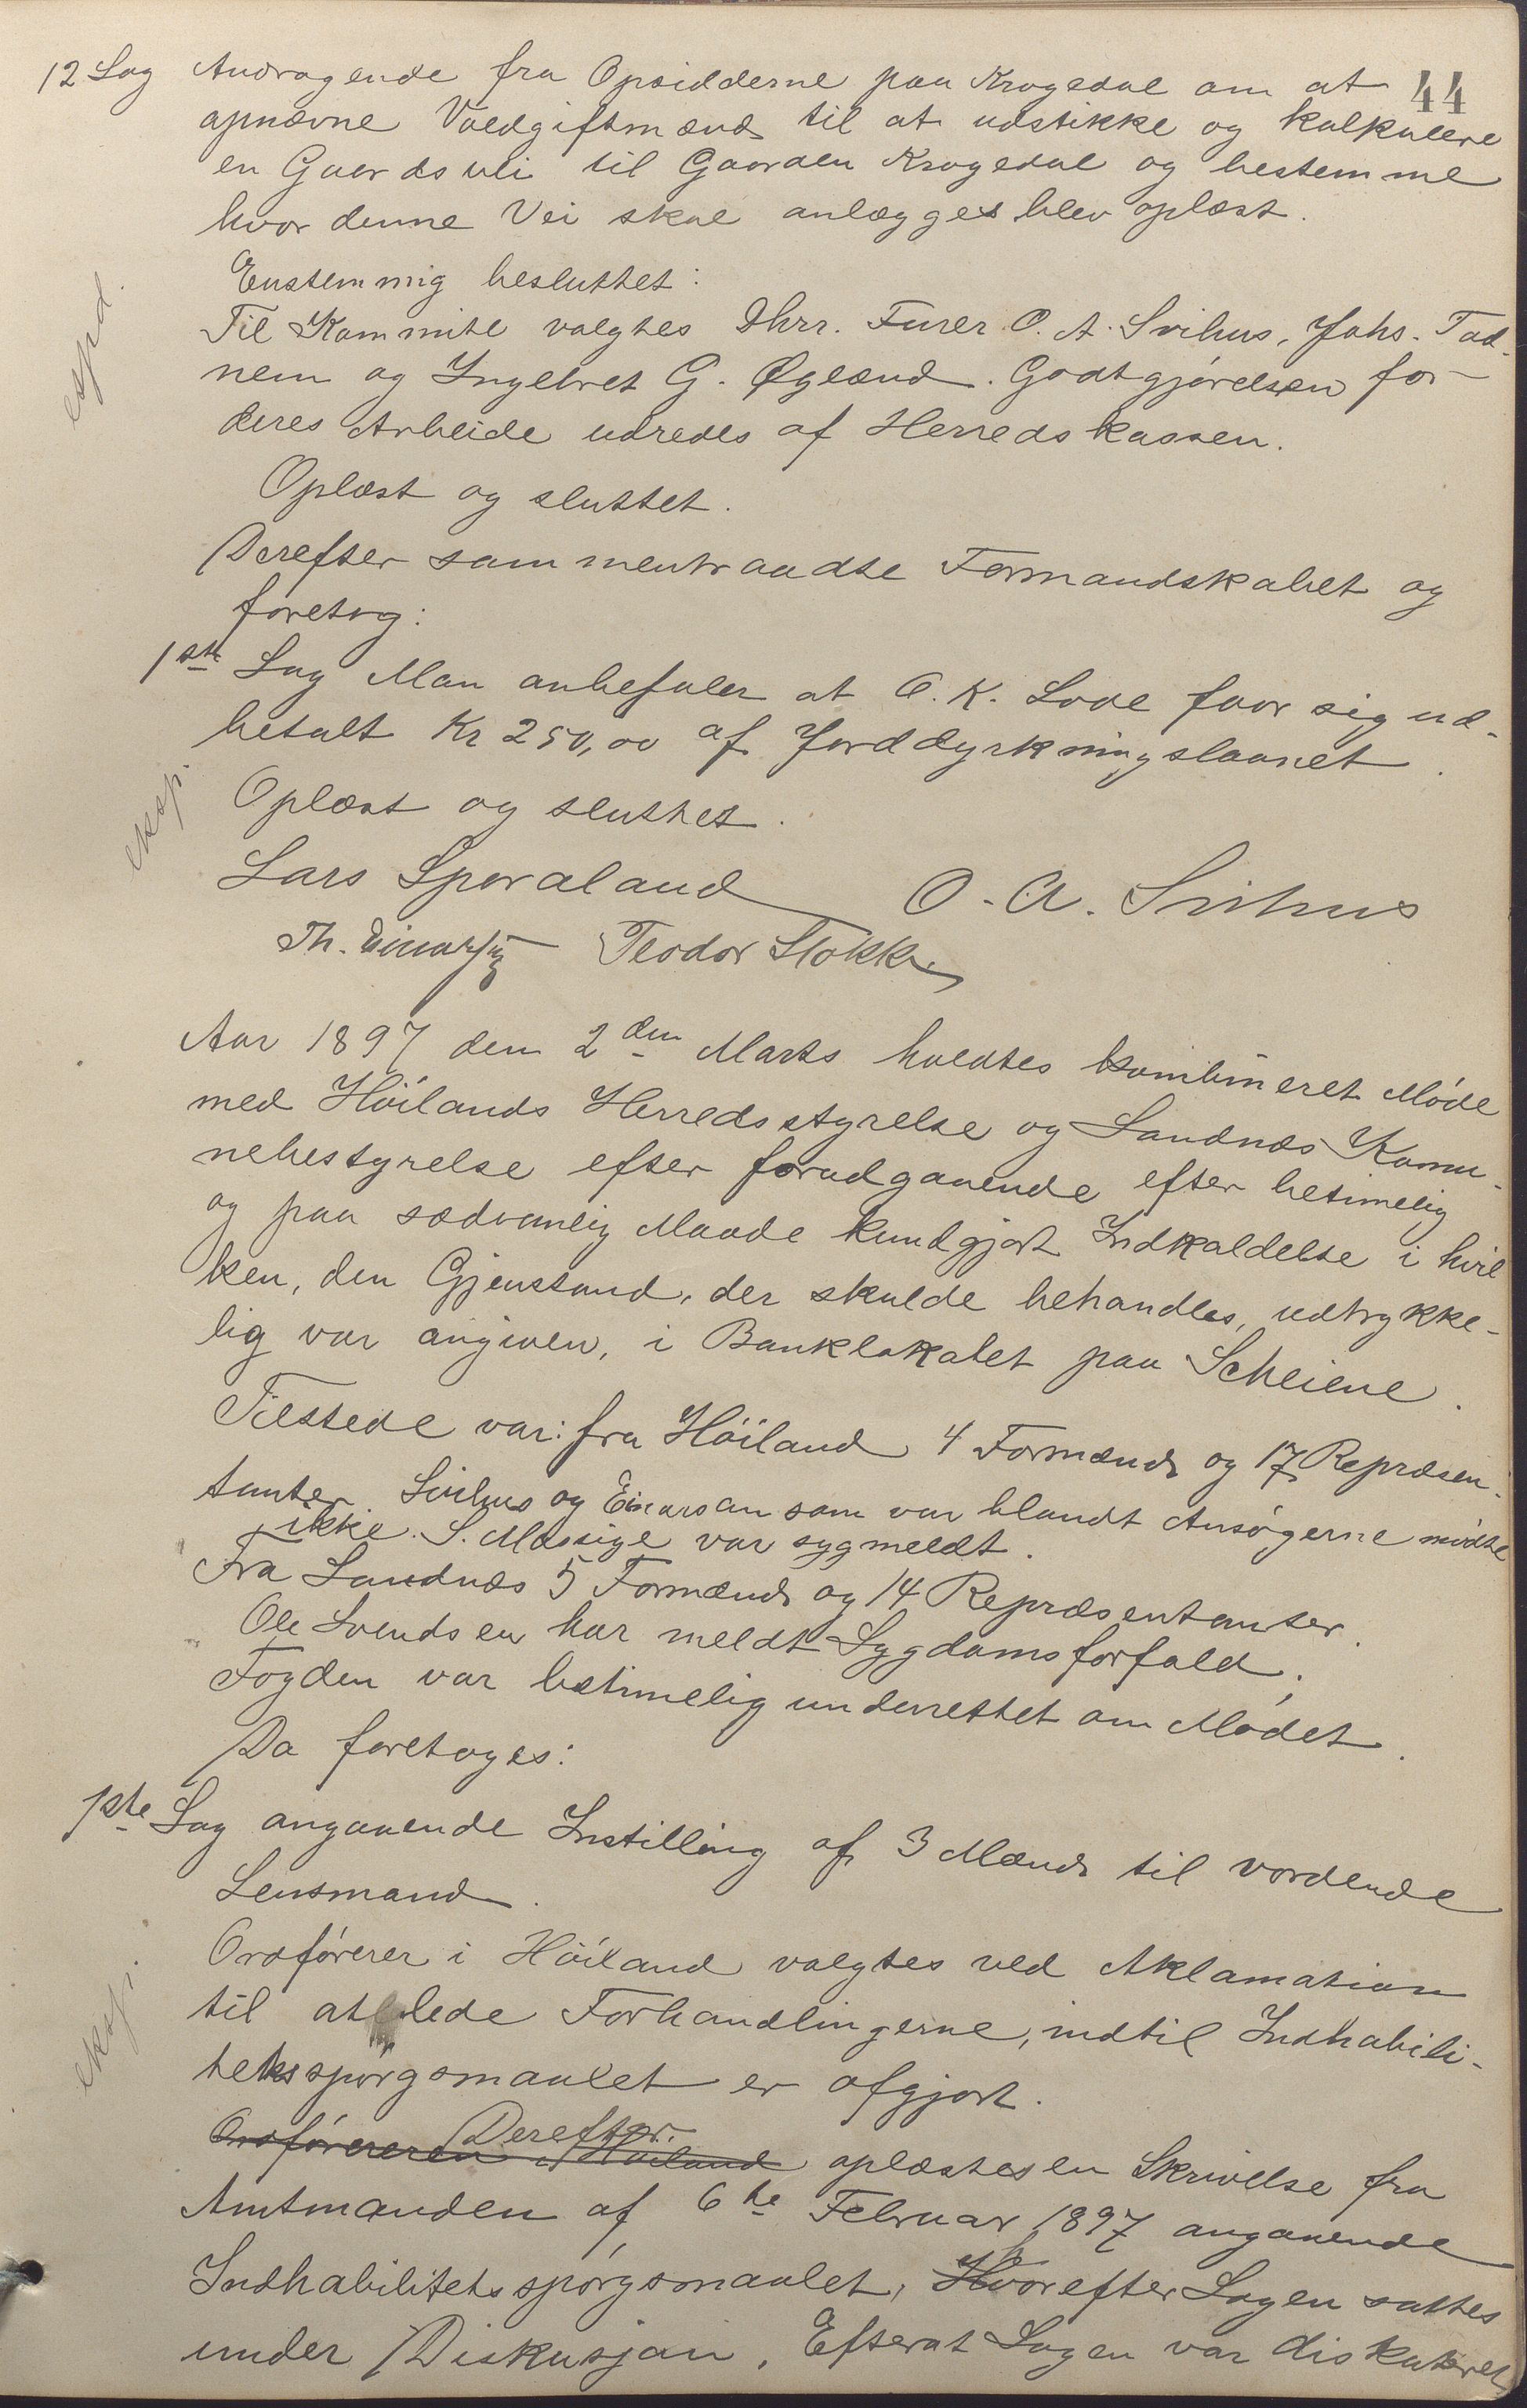 44
12 Sag Andragende fra Opsidderne paa Krogedal om at
opnævne Voldgiftmænd til at udstikke og kalkulere
en Gaardsvei til Gaarden Krogedal og bestemme
hvor denne Vei skal anlægges blev oplæst.
Enstemmig besluttet:
espd.
Til Kommite valgtes Dhrr. Furer O. A. Svihus, Johs. Tad-
nem og Ingebret G. Øglænd. Godtgjørelsen for
deres Arbeide udredes af Herredskassen.
Oplæst og sluttet.
Derefter sammentraadte Formandskabet og
foretog:
1ste Sag Man anbefaler at O. K. Lode faar sig ud-
betalt Kr 250,00 af Jorddyrkningslaanet.
eksp.
Oplæst og sluttet.
Lars Sporaland O. A. Svihus
Th. Einarsen Teodor Stokke
Aar 1897 den 2den Marts holdtes kombineret Møde
med Höilands Herredsstyrelse og Sandnæs Komu-
nebestyrelse efter forudgaaende efter betimelig
og paa sædvanlig Maade kundgjort Indkaldelse i hvil
ken, den Gjenstand, der skulde behandles, udtrykke-
lig var angiven, i Banklokalet paa Scheiene.
Tilstede var: fra Höiland 4 Formænd og 17 Repræsen-
tanter. Svihus og Einarsen som var blandt Ansøgerne mødte
ikke. S. Møssige var sygmeldt.
Fra Sandnæs 5 Formænd og 14 Repræsentanter.
Ole Svendsen har meldt Sygdomsforfald.
Fogden var betimelig underrettet om Mødet.
Da foretoges:
1ste Sag angaaende Instilling af 3 Mænd til vordende
Lensmand.
Ordførerer i Höiland valgtes ved Aklamation
eksp.
til at lede Forhandlingerne, indtil Indhabili-
tetsspørgsmaalet er afgjort.
Ordføreren i Höiland Derefter oplæstes en Skrivelse fra
Amtmanden af 6te Februar 1897 angaaende
Indhabilitetsspørgsmaalet, Hvorefter Sagen sattes
under Diskusjon. Efterat Sagen var diskuteret,